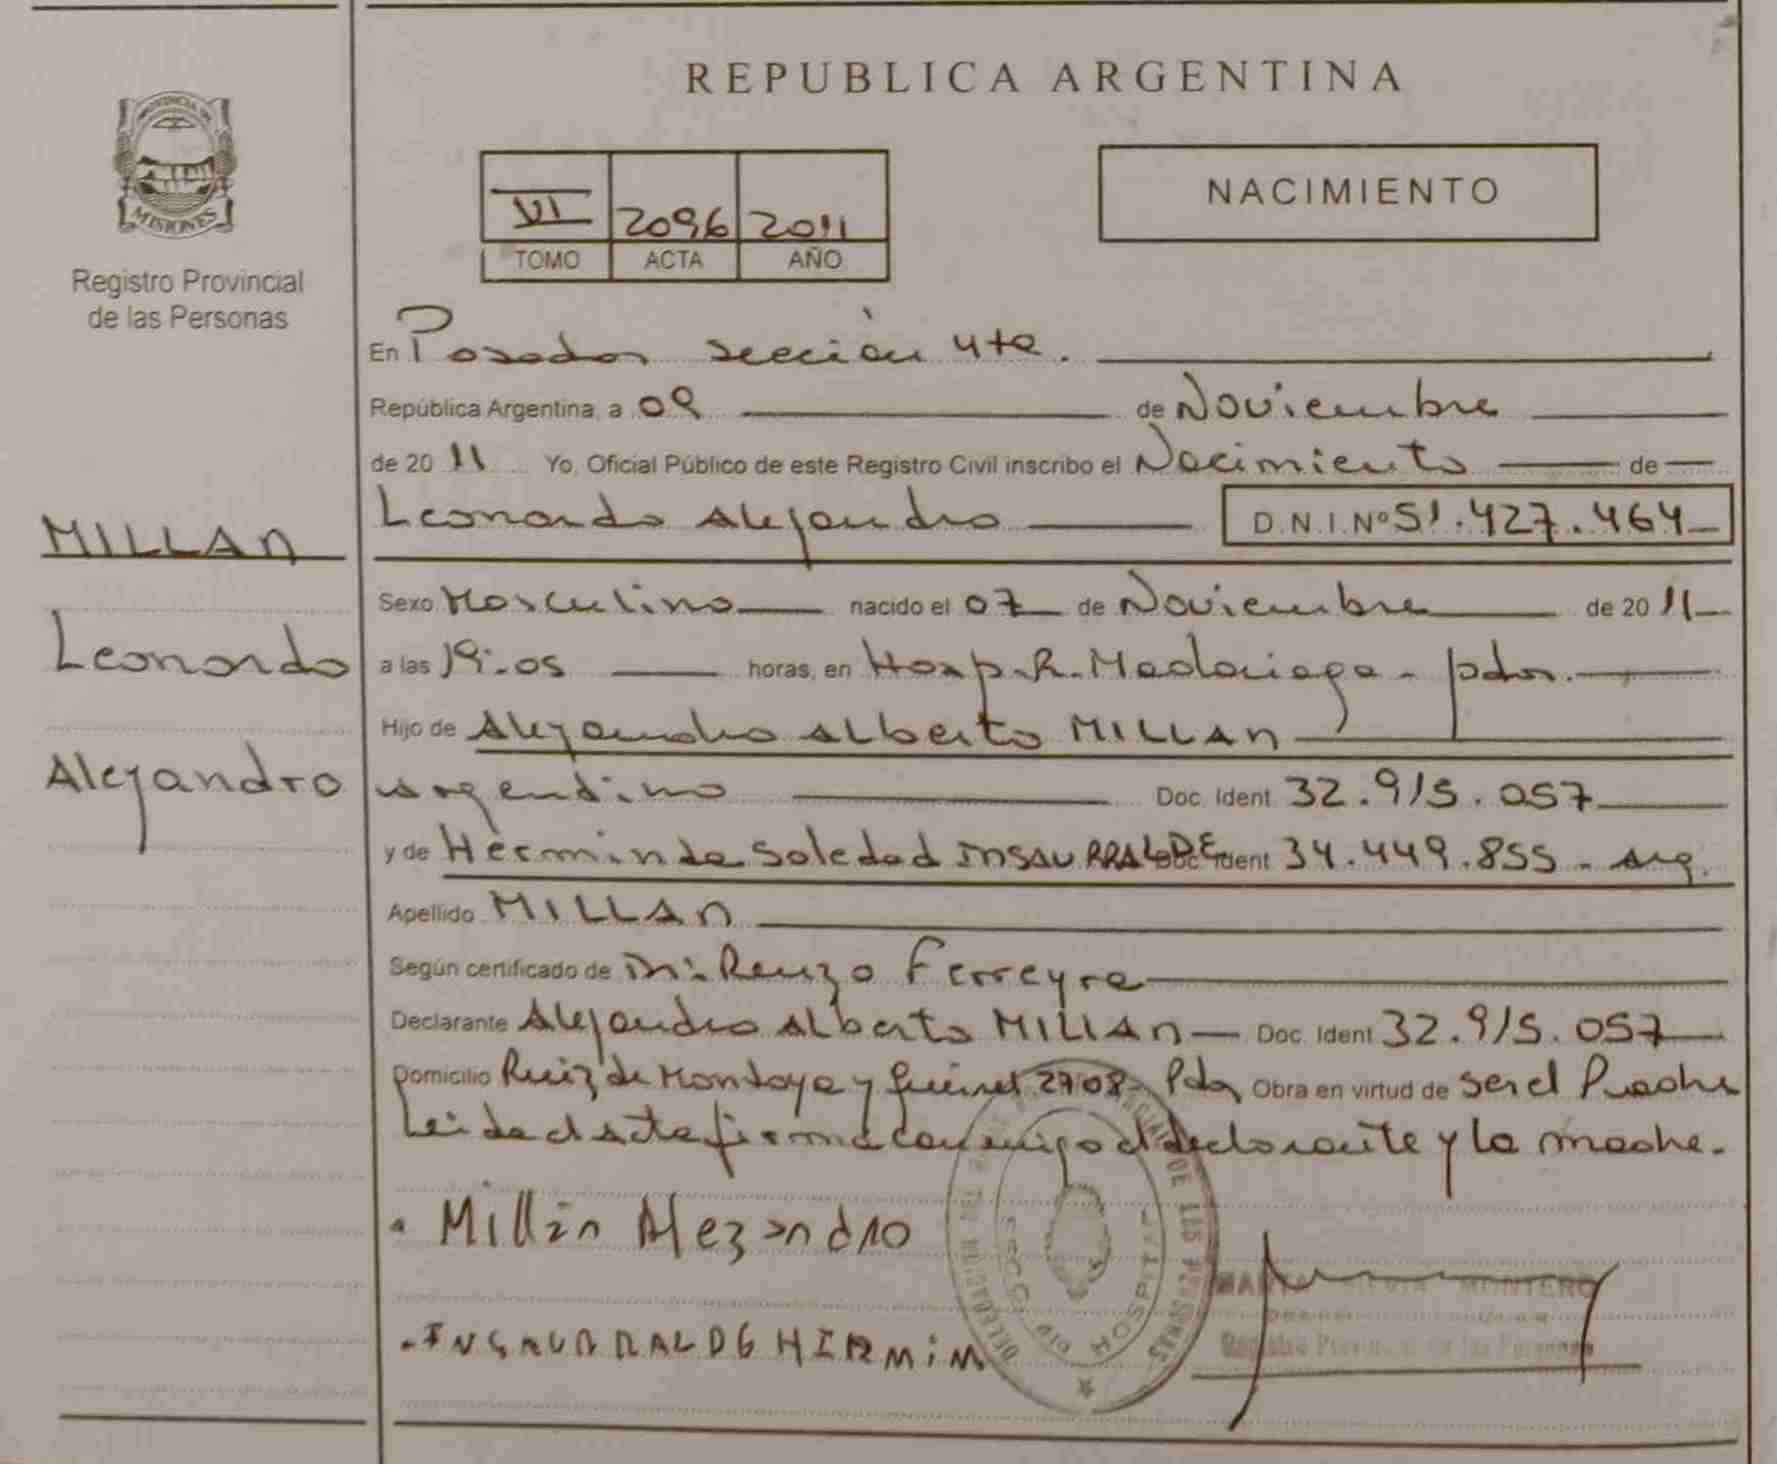 REPUBLICA ARGENTINA
PROVINCIA DE
MISIONES
Registro Provincial
de las Personas
VI 2096 2011
TOMO ACTA AÑO
NACIMIENTO
MILLAN
Leonardo
Alejandro
En Posadas sección 4ta.
República Argentina, a 09 de Noviembre
de 2011 Yo, Oficial Público de este Registro Civil inscribo el Nacimiento de
Leonardo Alejandro D.N.I. Nº 51.427.464
Sexo Masculino nacido el 07 de Noviembre de 2011
a las 19:05 horas, en Hosp. R. Madariaga - pdas.
Hijo de Alejandro Alberto MILLAN
argentino Doc. Ident 32.915.057
y de Herminda Soledad INSAURRALDE Doc. Ident 34.449.855 - arg.
Apellido MILLAN
Según certificado de Renzo Ferreyra
Declarante Alejandro Alberto MILLAN Doc. Ident 32.915.057
Domicilio Ruiz de Montoya y 2708 - Pdas Obra en virtud de ser el Padre
Leida el acta firma conmigo el declarante y la madre.
Millan Alejandro
INSAURRALDE HERMIN
HOSPITAL
MONTERO
Registro Provincial de las Personas